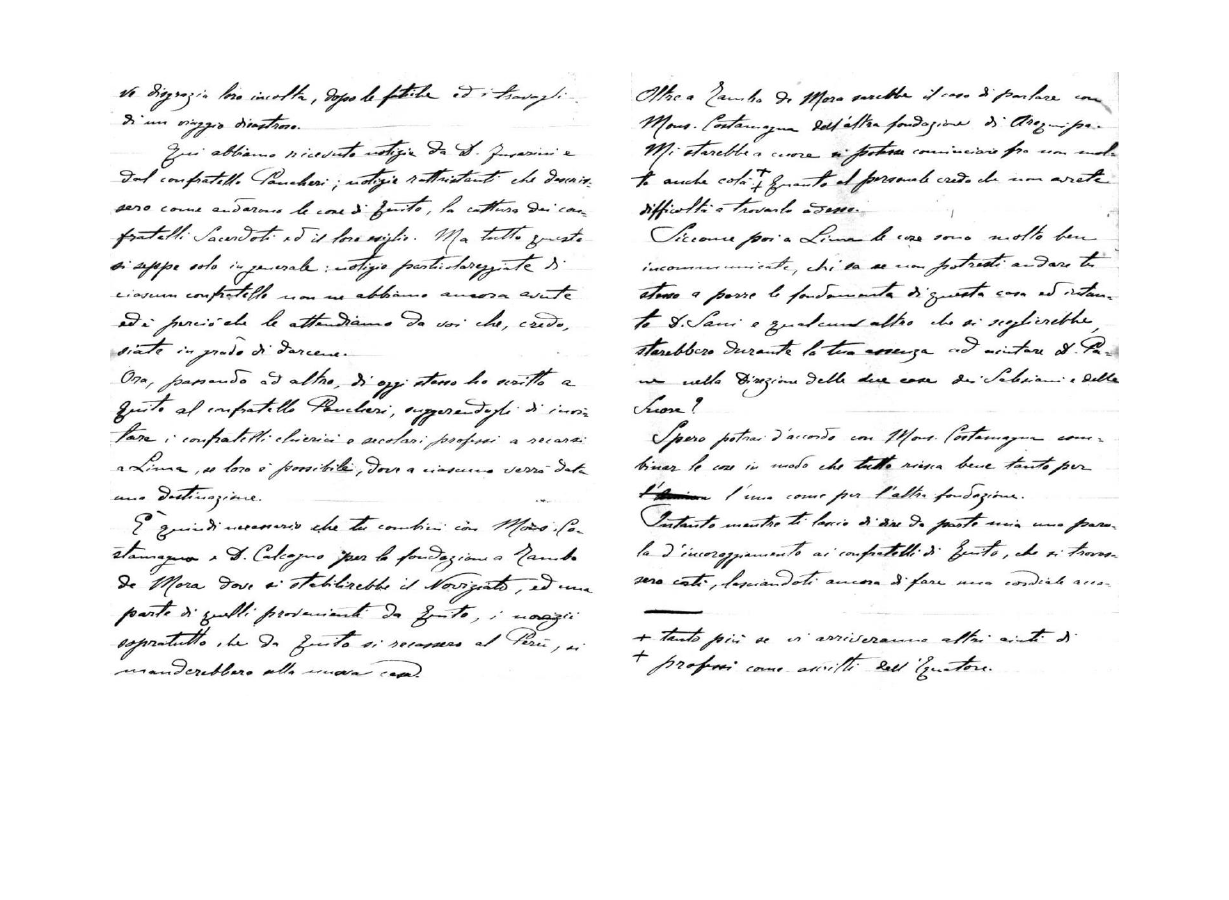 ve disgrazia loro incolta, dopo le fatiche ed i travagli
di un viaggio disastroso.
Qui abbiamo ricevuto notizie da D. Fusarini e
dal confratello Pancheri; notizie rattristanti che descris-
sero come andarono le cose di Quito, la cattura dei con-
fratelli Sacerdoti ed il loro esiglio. Ma tutto questo
si seppe solo in generale: notizie particolareggiate di
ciascun confratello non ne abbiamo ancora avute
ed è perciò che le attendiamo da voi che, credo,
siate in grado di darcene.
Ora, passando ad altro, di oggi stesso ho scritto a
Quito al confratello Pancheri, suggerendogli di invi-
tare i confratelli chierici e secolari professi a recarsi
a Lima, se loro è possibile, dove a ciascuno verrà data
una destinazione.
È quindi necessario che tu combini con Mons. Co-
stamagna e D. Calcagno per la fondazione a Zamba
de Mora dove si stabilirebbe il Noviziato, ed una
parte di quelli provenienti da Quito, i novizii
sopratutto che da Quito si recassero al Perù, si
manderebbero alla nuova casa.
Oltre a Zamba de Mora sarebbe il caso di parlare con
Mons. Costamagna dell'altra fondazione di Arequipa.
Mi starebbe a cuore si potesse cominciare fra non mol-
to anche colà ++ Quanto al personale credo che non avrete
difficoltà a trovarlo adesso.
Siccome poi a Lima le cose sono molto ben
incomminciate, chi sa se non potresti andare tu
stesso a porre le fondamenta di questa casa ed intan-
to D. Sani e qualcun altro che si sceglierebbe,
starebbero durante la tua assenza ad aiutare D. Pa-
ne nella direzione delle due case dei Salesiani e delle
Suore?
Spero potrai d'accordo con Mons. Costamagna com-
binar le cose in modo che tutto riesca bene tanto per
l'una come per l'altra fondazione.
Intanto mentre ti lascio di dire da parte mia una paro-
la d'incoraggiamento ai confratelli di Quito, che si trovas-
sero costì, lasciandoti ancora di fare una cordiale acco-
+ tanto più se vi arriveranno altri aiuti di
+ professi come ascritti dell'Equatore.